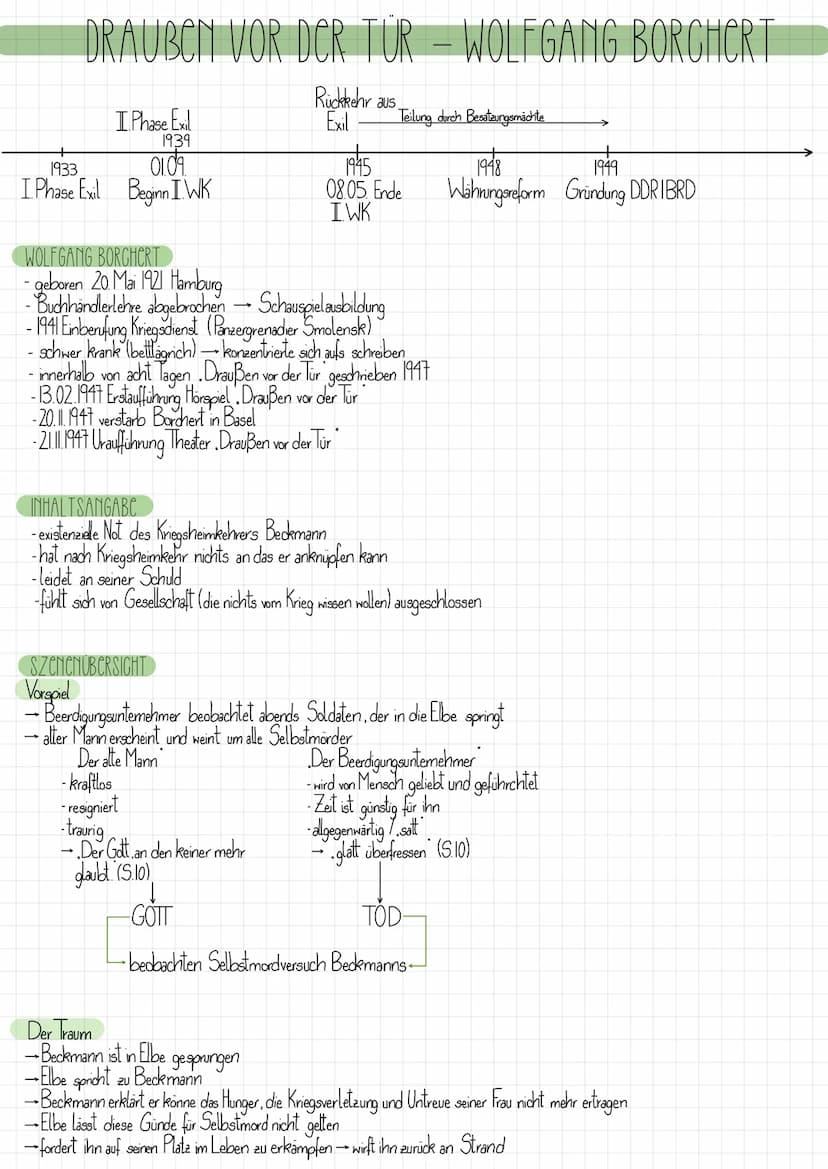 DRAUßEN VOR DER TÜR – WOLFGANG BORCHERT
Rückkehr aus
Exil
Teilung durch Besatzungsmächte
I.Phase Exil
1939
1933
01.09.
1945
1948
1949
I.Phase Exil
Beginn I.WK
08.05. Ende
I.WK
Währungsreform
Gründung DDR|BRD
WOLFGANG BORCHERT
- geboren 20. Mai 1921 Hamburg
- Buchhändlerlehre abgebrochen → Schauspielausbildung
- 1941 Einberufung Kriegsdienst (Panzergrenadier Smolensk)
- schwer krank (bettlägrich) → konzentrierte sich aufs schreiben
- innerhalb von acht Tagen „Draußen vor der Tür" geschrieben 1947
- 13.02.1947 Erstaufführung Hörspiel „Draußen vor der Tür"
- 20.11.1947 verstarb Borchert in Basel
- 21.11.1947 Uraufführung Theater „Draußen vor der Tür"
INHALTSANGABE
- existenzielle Not des Kriegsheimkehrers Beckmann
- hat nach Kriegsheimkehr nichts an das er anknüpfen kann
- leidet an seiner Schuld
- fühlt sich von Gesellschaft (die nichts vom Krieg wissen wollen) ausgeschlossen
SZENENÜBERSICHT
Vorspiel
→ Beerdigungsunternehmer beobachtet abends Soldaten, der in die Elbe springt
→ alter Mann erscheint und weint um alle Selbstmörder
„Der alte Mann"
- kraftlos
- resigniert
- traurig
→ „Der Gott, an den keiner mehr
glaubt." (S.10)
„Der Beerdigungsunternehmer"
- wird von Mensch geliebt und geführchtet
- Zeit ist günstig für ihn
- allgegenwärtig / „satt"
→ „glatt überfressen" (S.10)
GOTT
TOD
beobachten Selbstmordversuch Beckmanns
Der Traum
→ Beckmann ist in Elbe gesprungen
→ Elbe spricht zu Beckmann
→ Beckmann erklärt er könne das Hunger, die Kriegsverletzung und Untreue seiner Frau nicht mehr ertragen
→ Elbe lässt diese Günde für Selbstmord nicht gelten
→ fordert ihn auf seinen Platz im Leben zu erkämpfen → wirft ihn zurück an Strand